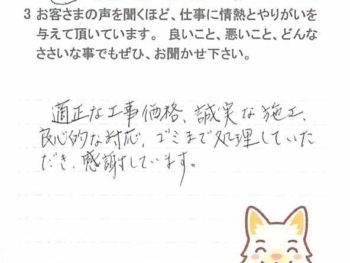 3 お客さまの声を聞くほど、仕事に情熱とやりがいを
与えて頂いています。 良いこと、悪いこと、どんな
ささいな事でもぜひ、お聞かせ下さい。
適正な工事価格、誠実な施工、
良心的な対応、ゴミまで処理していた
だき、感謝しています。